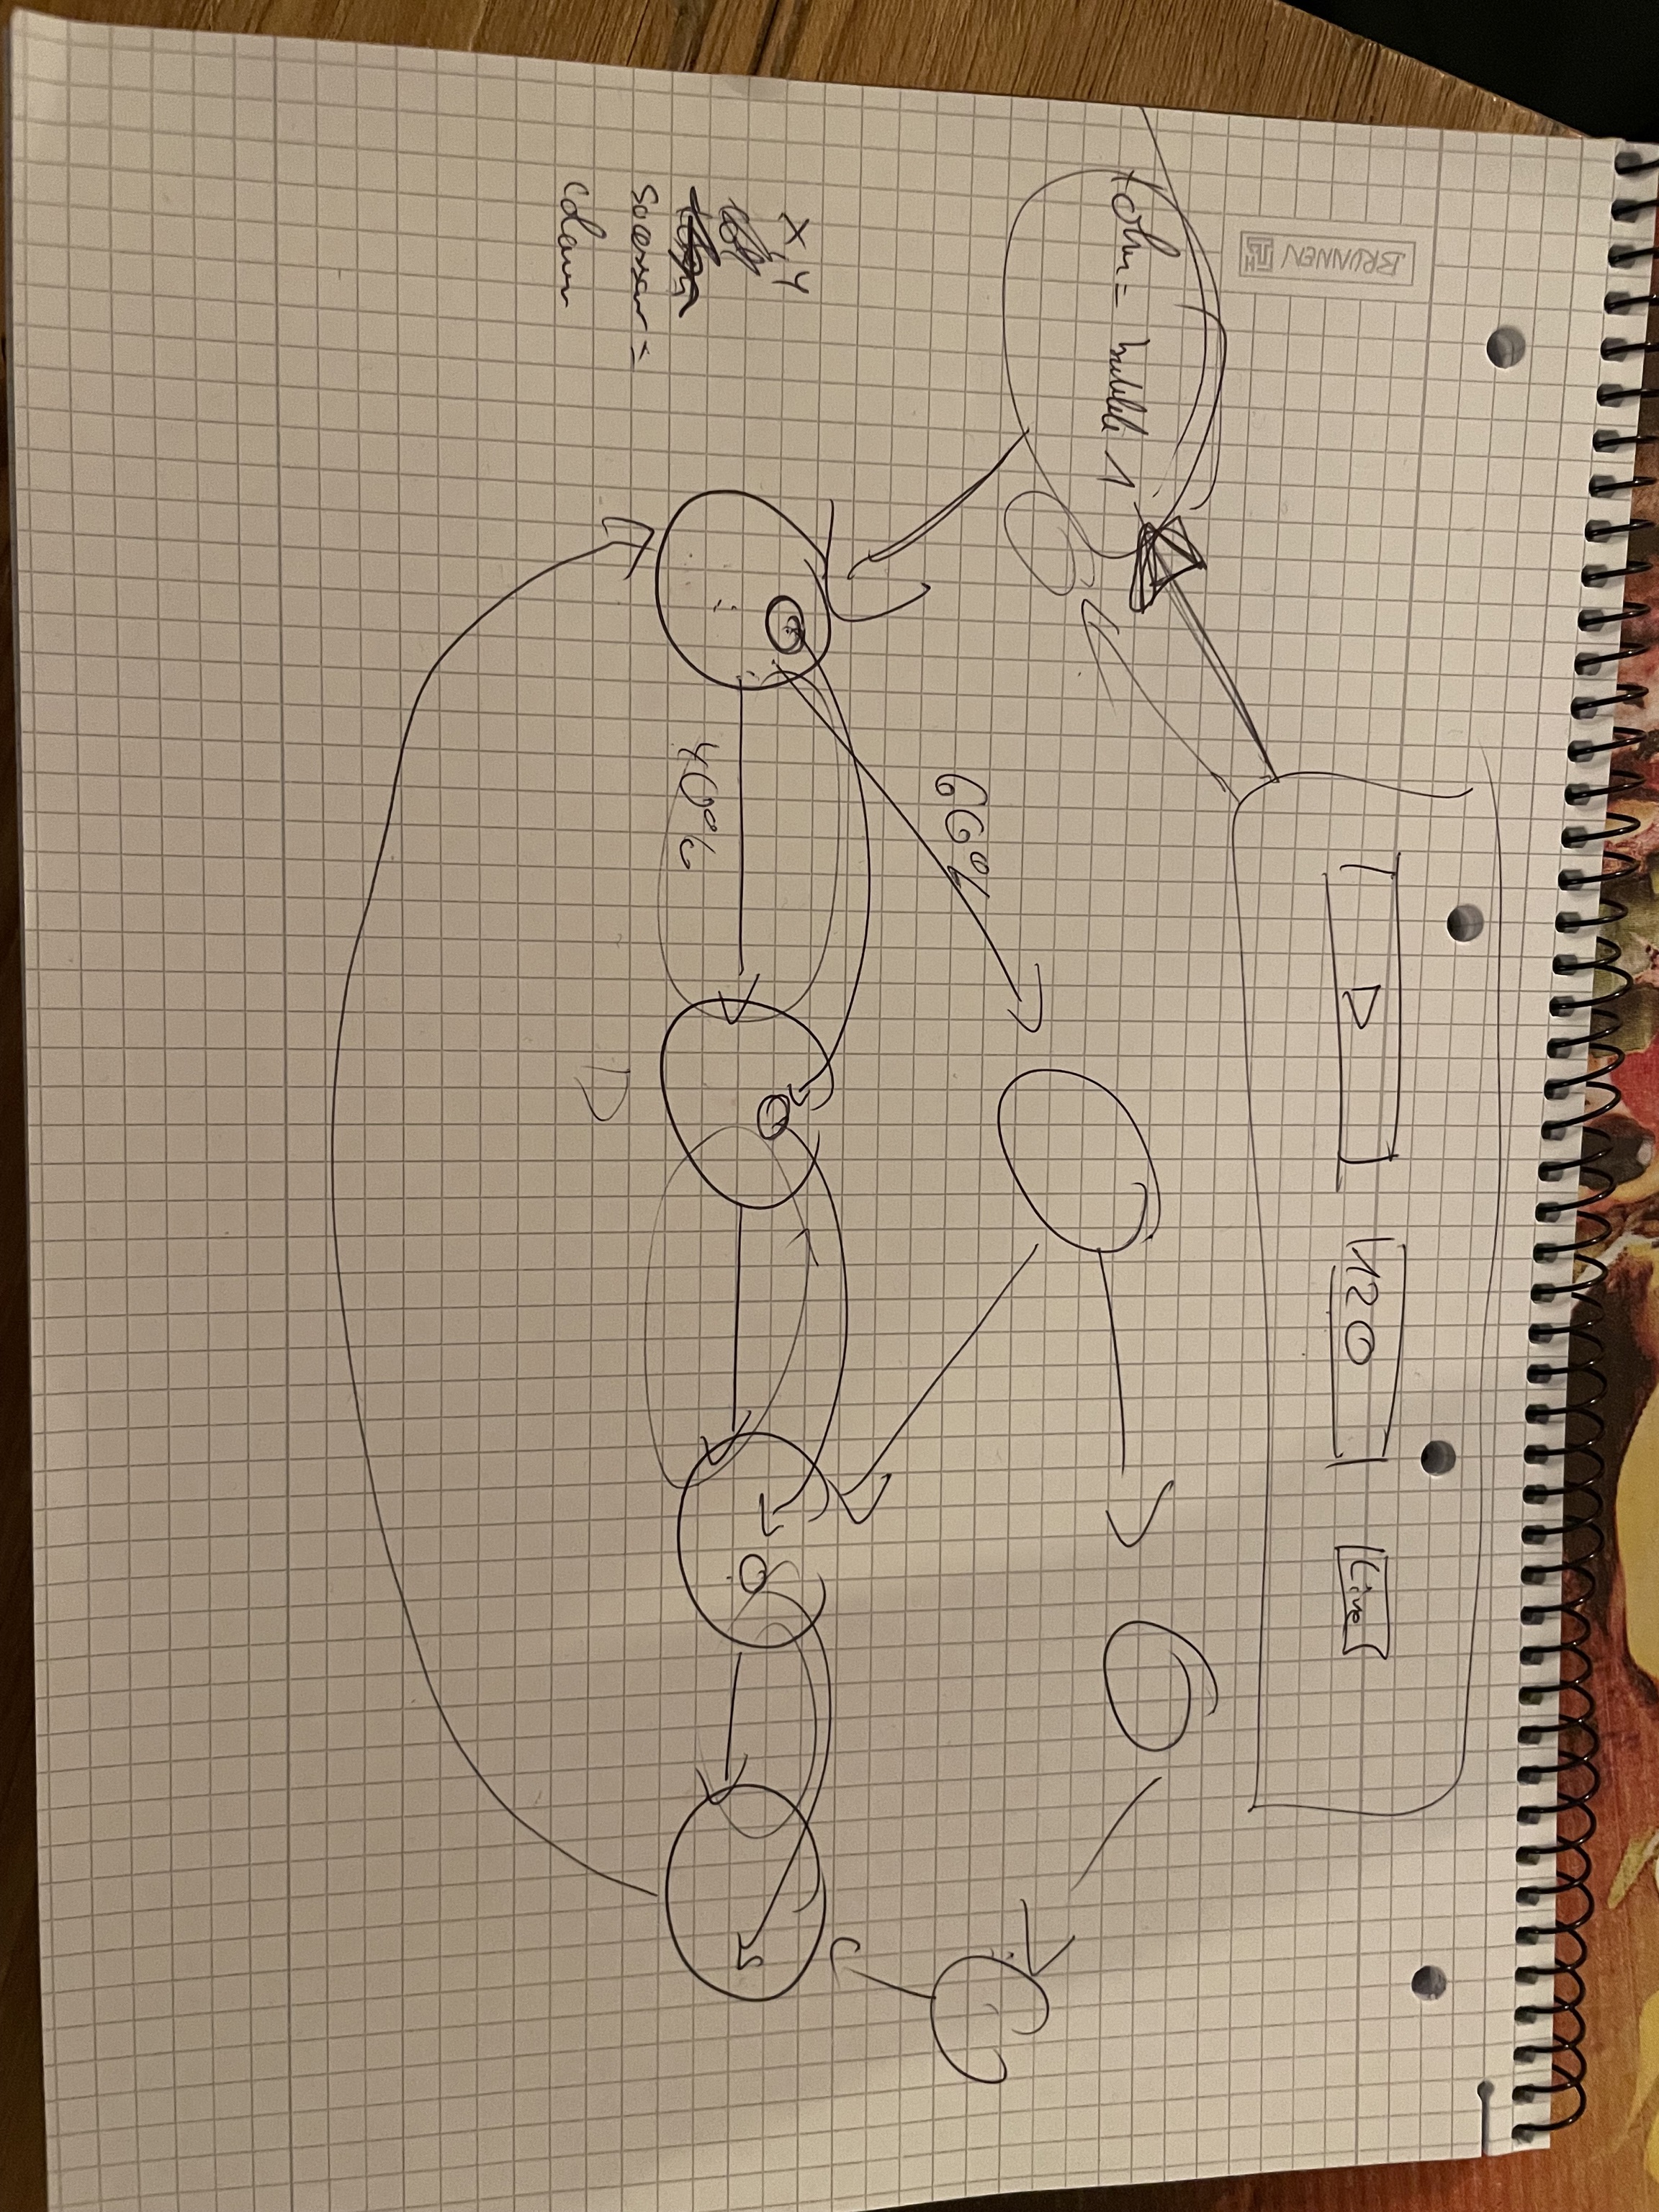 BRUNNEN
120
Live
token = bubble 1
60%
X, Y
40%
socessor =
colour